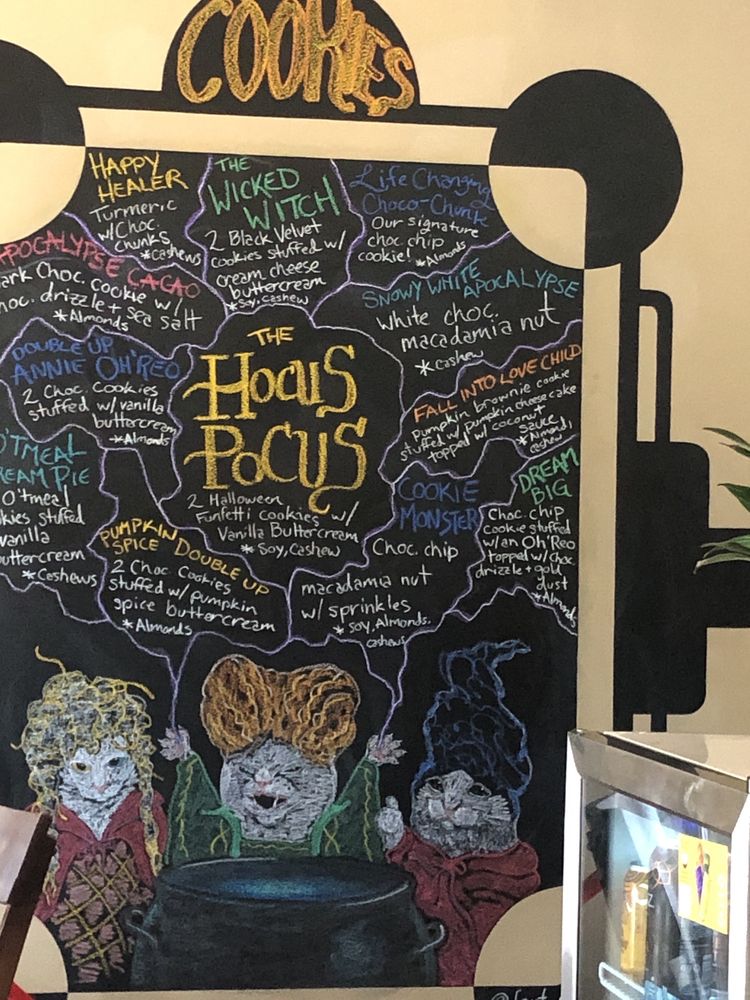 COOKIES
HAPPY
HEALER
Turmeric
w/Choc.
Chunks
*cashews
THE
WICKED
WITCH
2 Black Velvet
cookies stuffed w/
cream cheese
buttercream
*Soy, Cashew
Life Changing
Choco-Chunk
Our signature
choc chip
cookie!
*Almonds
POCALYPSE CACAO
ark Choc. cookie w/
hoc. drizzle + sea salt
*Almonds
SNOWY WHITE APOCALYPSE
white choc.
macadamia nut
*cashew
DOUBLE UP
ANNIE OH'REO
2 Choc. Cookies
stuffed w/vanilla
buttercream
*Almonds
THE
HOCUS
POCUS
2 Halloween
Funfetti cookies w/
Vanilla Buttercream
*Soy, Cashew
FALL INTO LOVE CHILD
pumpkin brownie cookie
stuffed w/ pumpkin cheesecake
topped w/ coconut
sauce
*Almond,
cashew
O'TMEAL
REAM PIE
O'tmeal
kies stuffed
vanilla
uttercream
*Cashews
PUMPKIN
SPICE DOUBLE UP
2 Choc Cookies
stuffed w/pumpkin
spice buttercream
*Almonds
COOKIE
MONSTER
Choc. chip
macadamia nut
w/ sprinkles
*soy, Almonds,
cashews
DREAM
BIG
Choc. chip
cookie stuffed
w/an Oh'Reo
topped w/choc
drizzle + gold
dust
*Almonds